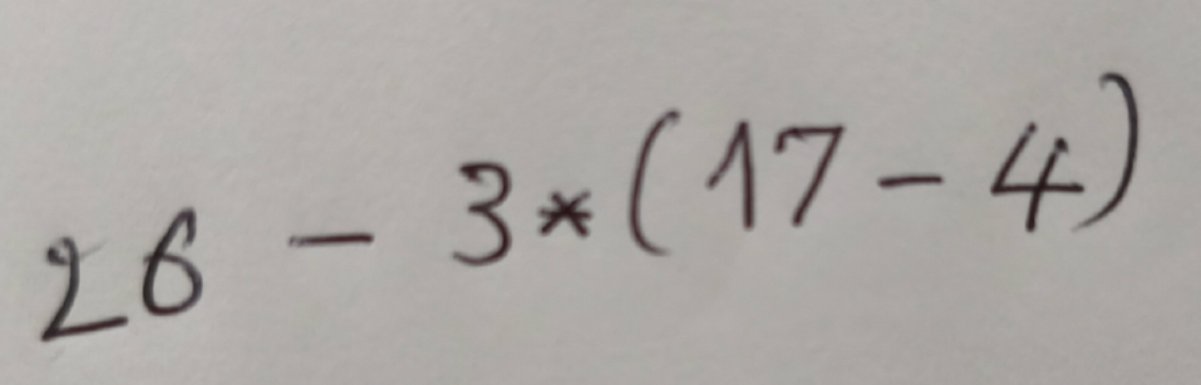 26 - 3*(17-4)